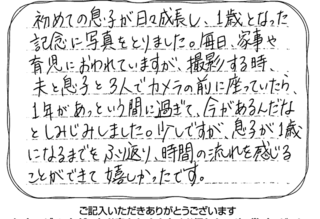 初めての息子が日々成長し、1歳となった
記念に写真をとりました。毎日、家事や
育児におわれていますが、撮影する時、
夫と息子と3人でカメラの前に座っていたら、
1年があっという間に過ぎて、今があるんだな
としみじみしました。少しですが、息子が1歳
になるまでをふり返り、時間の流れを感じる
ことができて嬉しかったです。
ご記入いただきありがとうございます